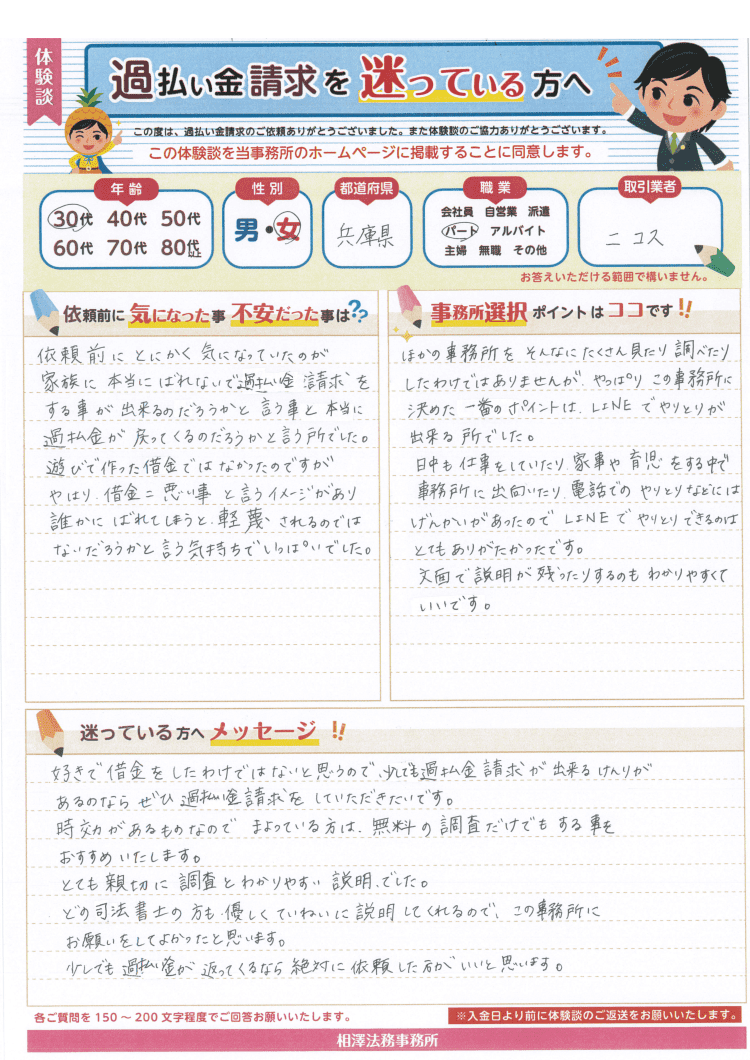 体験談
過払い金請求を迷っている方へ
この度は、過払い金請求のご依頼ありがとうございました。また体験談のご協力ありがとうございます。
この体験談を当事務所のホームページに掲載することに同意します。
年齢
30代 40代 50代
60代 70代 80代以上
性別
男・女
都道府県
兵庫県
職業
会社員 自営業 派遣
パート アルバイト
主婦 無職 その他
取引業者
ニコス
お答えいただける範囲で構いません。
依頼前に気になった事 不安だった事は??
依頼前にとにかく気になっていたのが
家族に本当にばれないで過払い金 請求を
する事が出来るのだろうかと言う事と本当に
過払金が戻ってくるのだろうかと言う所でした。
遊びで作った借金ではなかったのですが
やはり、借金=悪い事と言うイメージがあり
誰かにばれてしまうと、軽蔑されるのでは
ないだろうかと言う気持ちでいっぱいでした。
事務所選択ポイントはココです!!
ほかの事務所をそんなにたくさん見たり調べたり
したわけではありませんが、やっぱりこの事務所に
決めた一番のポイントは、LINEでやりとりが
出来る所でした。
日中も仕事をしていたり、家事や育児をする中で
事務所に出向いたり、電話でのやりとりなどには
げんかいがあったのでLINEでやりとりできるのは
とてもありがたかったです。
文面で説明が残ったりするのもわかりやすくて
いいです。
迷っている方へメッセージ!!
好きで借金をしたわけではないと思うので、少しでも過払金請求が出来るけんりが
あるのならぜひ過払い金請求をしていただきたいです。
時効があるものなのでまよっている方は、無料の調査だけでもする事を
おすすめいたします。
とても親切に調査とわかりやすい説明、でした。
どの司法書士の方も優しくていねいに説明してくれるので、この事務所に
お願いをしてよかったと思います。
少しでも過払い金が返ってくるなら絶対に依頼した方がいいと思います。
各ご質問を150～200文字程度でご回答お願いいたします。
※入金日より前に体験談のご返送をお願いいたします。
相澤法務事務所